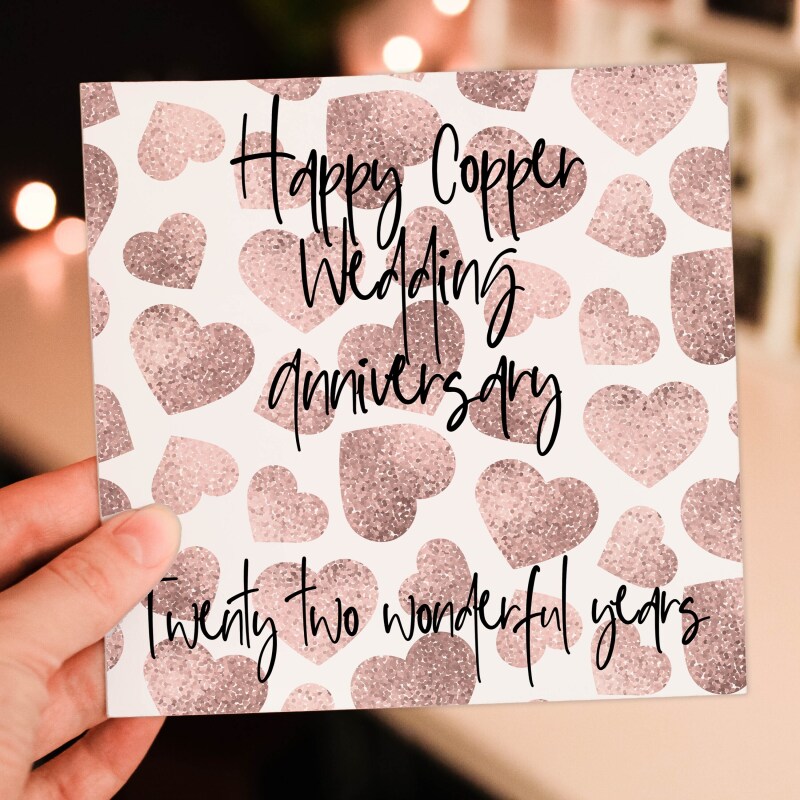 Happy Copper
Wedding
anniversary
Twenty two wonderful years